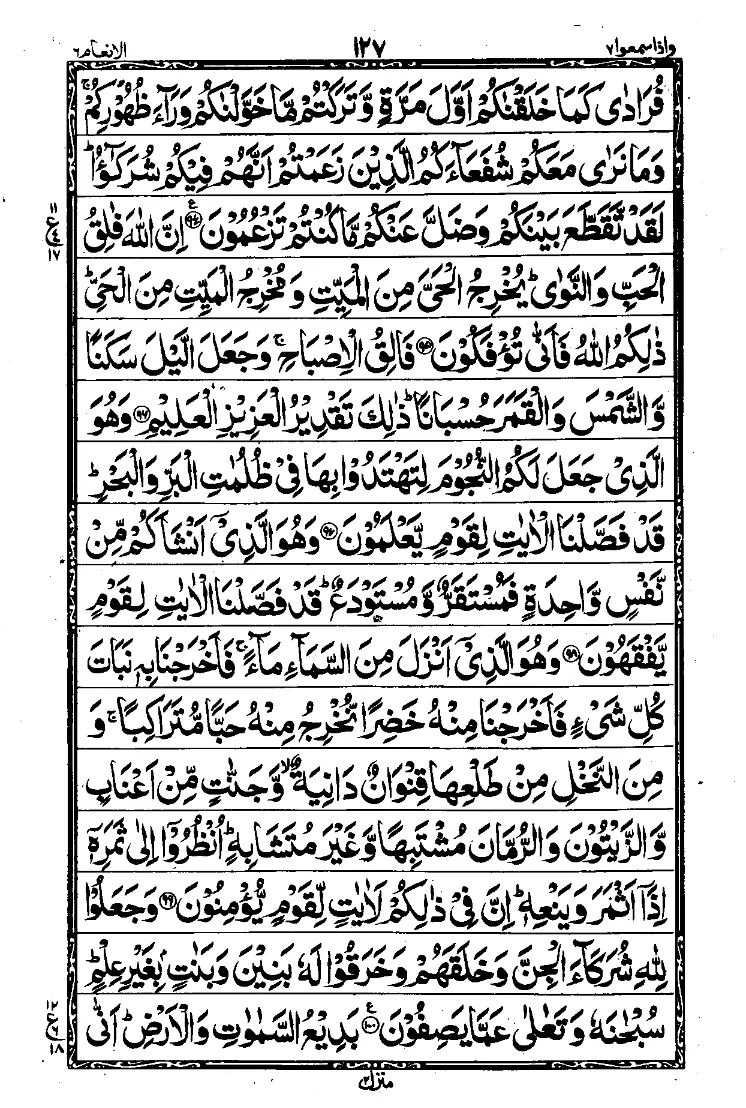 واذاسمعوا٧ ١٢٧ الانعام٦
فُرَادٰى كَمَا خَلَقْنٰكُمْ اَوَّلَ مَرَّةٍ وَّتَرَكْتُمْ مَّا خَوَّلْنٰكُمْ وَرَآءَ ظُهُوْرِكُمْ ۚ
وَمَا نَرٰى مَعَكُمْ شُفَعَآءَكُمُ الَّذِيْنَ زَعَمْتُمْ اَنَّهُمْ فِيْكُمْ شُرَكٰٓؤُا ؕ
لَقَدْ تَّقَطَّعَ بَيْنَكُمْ وَضَلَّ عَنْكُمْ مَّا كُنْتُمْ تَزْعُمُوْنَ ﴿٩٤﴾ اِنَّ اللّٰهَ فَالِقُ
الْحَبِّ وَالنَّوٰى ؕ يُخْرِجُ الْحَيَّ مِنَ الْمَيِّتِ وَمُخْرِجُ الْمَيِّتِ مِنَ الْحَيِّ ؕ
ذٰلِكُمُ اللّٰهُ فَاَنّٰى تُؤْفَكُوْنَ ﴿٩٥﴾ فَالِقُ الْاِصْبَاحِ ۚ وَجَعَلَ الَّيْلَ سَكَنًا
وَّالشَّمْسَ وَالْقَمَرَ حُسْبَانًا ؕ ذٰلِكَ تَقْدِيْرُ الْعَزِيْزِ الْعَلِيْمِ ﴿٩٦﴾ وَهُوَ
الَّذِيْ جَعَلَ لَكُمُ النُّجُوْمَ لِتَهْتَدُوْا بِهَا فِيْ ظُلُمٰتِ الْبَرِّ وَالْبَحْرِ ؕ
قَدْ فَصَّلْنَا الْاٰيٰتِ لِقَوْمٍ يَّعْلَمُوْنَ ﴿٩٧﴾ وَهُوَ الَّذِيْۤ اَنْشَاَكُمْ مِّنْ
نَّفْسٍ وَّاحِدَةٍ فَمُسْتَقَرٌّ وَّمُسْتَوْدَعٌ ؕ قَدْ فَصَّلْنَا الْاٰيٰتِ لِقَوْمٍ
يَّفْقَهُوْنَ ﴿٩٨﴾ وَهُوَ الَّذِيْۤ اَنْزَلَ مِنَ السَّمَآءِ مَآءً ۚ فَاَخْرَجْنَا بِهٖ نَبَاتَ
كُلِّ شَيْءٍ فَاَخْرَجْنَا مِنْهُ خَضِرًا نُّخْرِجُ مِنْهُ حَبًّا مُّتَرَاكِبًا ۚ وَ
مِنَ النَّخْلِ مِنْ طَلْعِهَا قِنْوَانٌ دَانِيَةٌ ۙ وَّجَنّٰتٍ مِّنْ اَعْنَابٍ
وَّالزَّيْتُوْنَ وَالرُّمَّانَ مُشْتَبِهًا وَّغَيْرَ مُتَشَابِهٍ ؕ اُنْظُرُوْۤا اِلٰى ثَمَرِهٖۤ
اِذَاۤ اَثْمَرَ وَيَنْعِهٖ ؕ اِنَّ فِيْ ذٰلِكُمْ لَاٰيٰتٍ لِّقَوْمٍ يُّؤْمِنُوْنَ ﴿٩٩﴾ وَجَعَلُوْا
لِلّٰهِ شُرَكَآءَ الْجِنَّ وَخَلَقَهُمْ وَخَرَقُوْا لَهٗ بَنِيْنَ وَبَنٰتٍۭ بِغَيْرِ عِلْمٍ ؕ
سُبْحٰنَهٗ وَتَعٰلٰى عَمَّا يَصِفُوْنَ ﴿١٠٠﴾ بَدِيْعُ السَّمٰوٰتِ وَالْاَرْضِ ؕ اَنّٰى
منزل٢